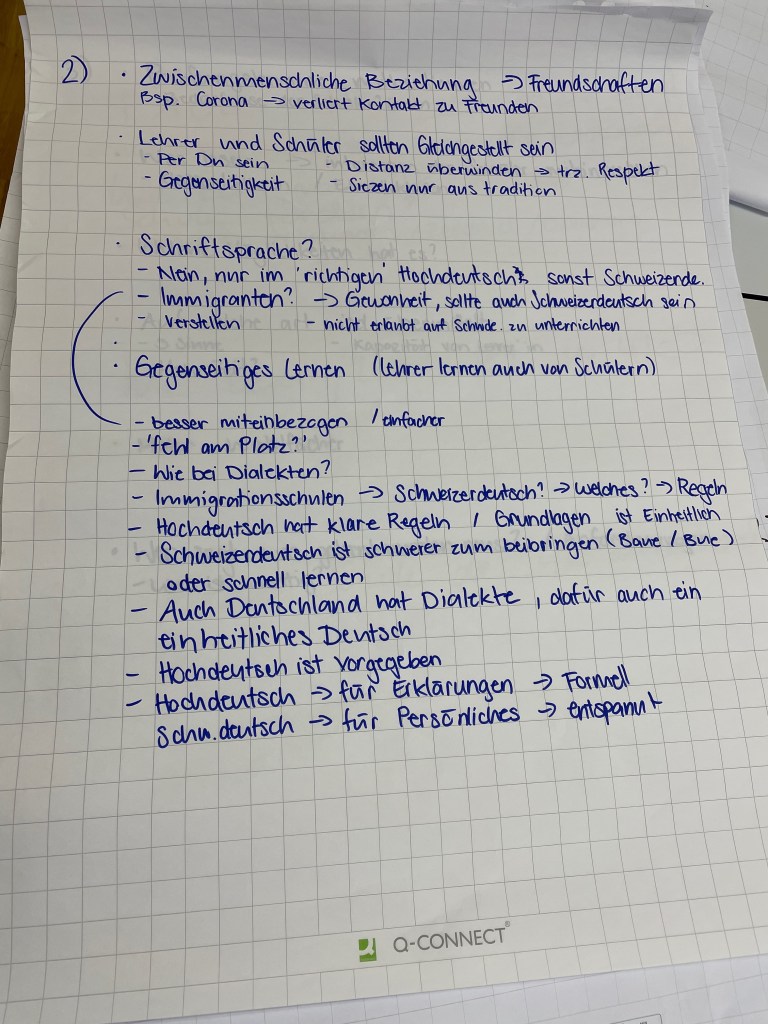 2) · Zwischenmenschliche Beziehung → Freundschaften
Bsp. Corona → verliert Kontakt zu Freunden
· Lehrer und Schüler sollten Gleichgestellt sein
- Per Du sein - Distanz überwinden → trz. Respekt
- Gegenseitigkeit - Siezen nur aus tradition
· Schriftsprache?
- Nein, nur im 'richtigen' Hochdeutsch, sonst Schweizerde.
- Immigranten? → Gewonheit, sollte auch Schweizerdeutsch sein
- verstellen - nicht erlaubt auf Schwde. zu unterrichten
·
· Gegenseitiges Lernen (Lehrer lernen auch von Schülern)
- besser miteinbezogen / einfacher
- 'fehl am Platz?'
- Wie bei Dialekten?
- Immigrationsschulen → Schweizerdeutsch? → welches? → Regeln
- Hochdeutsch hat klare Regeln / Grundlagen ist Einheitlich
- Schweizerdeutsch ist schwerer zum beibringen (Baue / Bue)
oder schnell lernen
- Auch Deutschland hat Dialekte, dafür auch ein
einheitliches Deutsch
- Hochdeutsch ist vorgegeben
- Hochdeutsch → für Erklärungen → Formell
Schw.deutsch → für Persönliches → entspannt
Q-CONNECT®